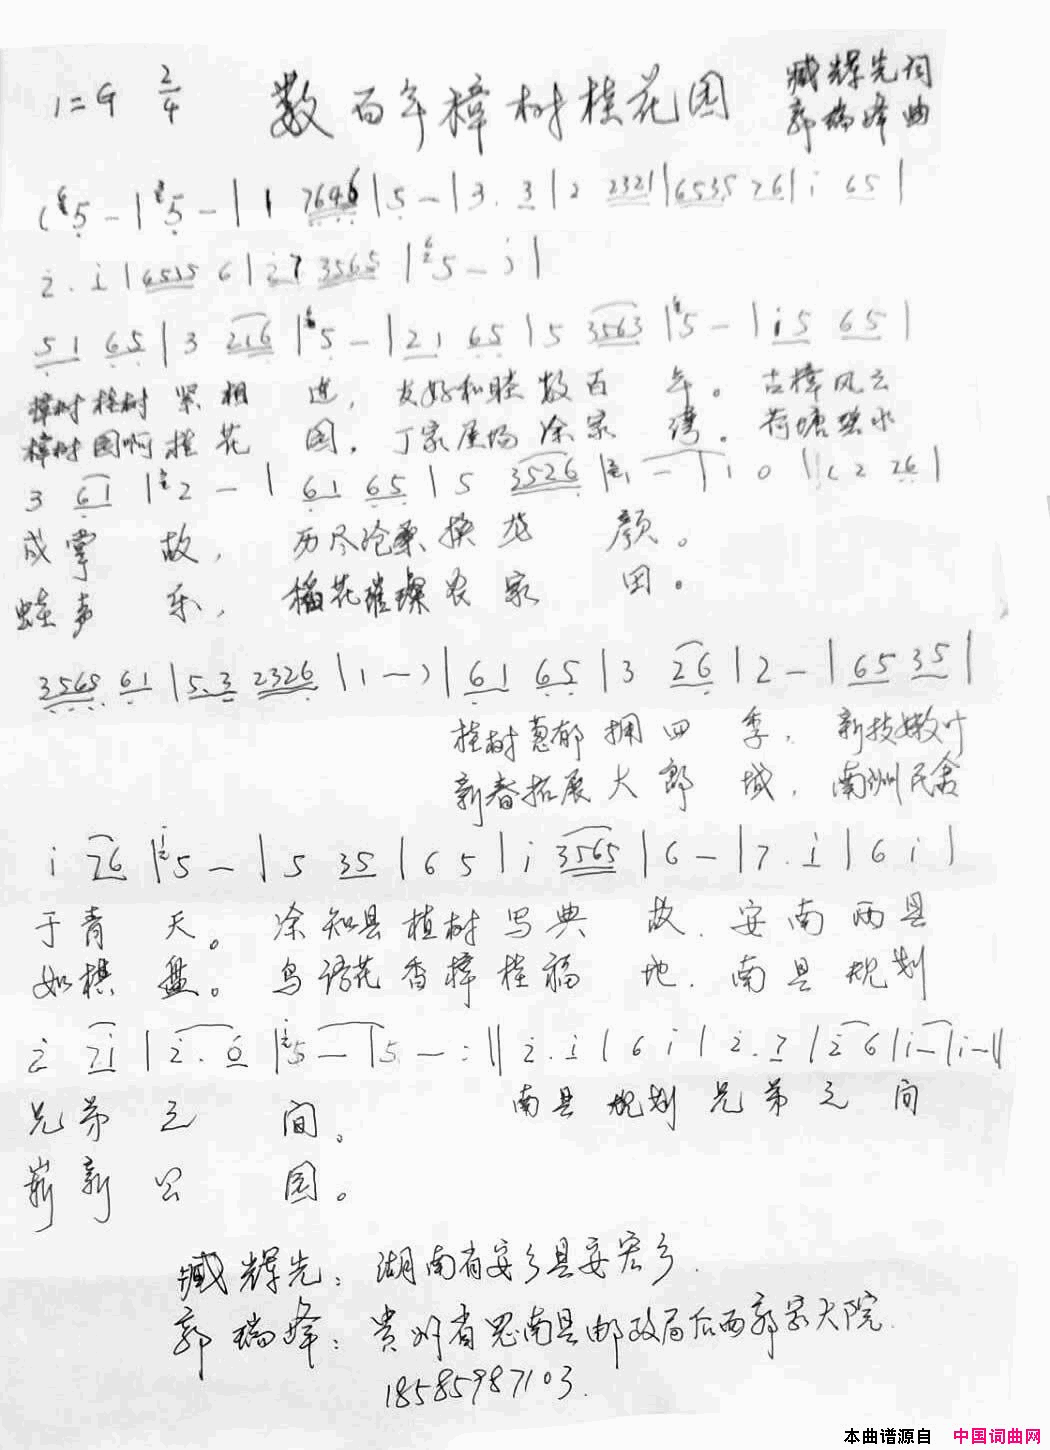 1=G 2/4 数百年樟树桂花园 臧辉先词
郭瑞峰曲
(5 - | 5 - | 1 7646 | 5 - | 3. 3 | 2 2321 | 6535 76 | i 65 |
2. i | 6515 6 | i7 3565 | 5 - i |
51 65 | 3 216 | 5 - | 21 65 | 5 3563 | 5 - | i5 65 |
樟树桂树 紧相 连, 友好和睦数百 年。 古樟风云
樟树园啊桂花 园, 丁家屋场涂家 湾。 荷塘碧水
3 61 | 2 - | 61 65 | 5 3526 | 1 - | 1 0 | ( 2 26 |
成掌 故, 历尽沧桑换龙 颜。
蛙声 乐, 稻花璀璨农家 田。
3565 61 | 5.3 2326 | 1 - ) | 61 65 | 3 26 | 2 - | 65 35 |
桂树葱郁拥四 季, 新技嫩叶
新春拓展大郎 城, 南洲民舍
i 76 | 5 - | 5 35 | 6 5 | i 3565 | 6 - | 7. i | 6 i |
于青 天。 涂知县植树写典 故, 安南两县
如棋 盘。 鸟语花香樟桂福 地, 南县规划
2 7i | 2. 6 | 5 - | 5 - :‖ 2. i | 6 i | 2. 7 | 2 6 | i - | i - ‖
兄弟之 间。 南县规划兄弟之 间
崭新公 园。
臧辉先: 湖南省安乡县安宏乡.
郭瑞峰: 贵州省思南县邮政局后面郭家大院.
18585987103.
本曲谱源自 中国词曲网